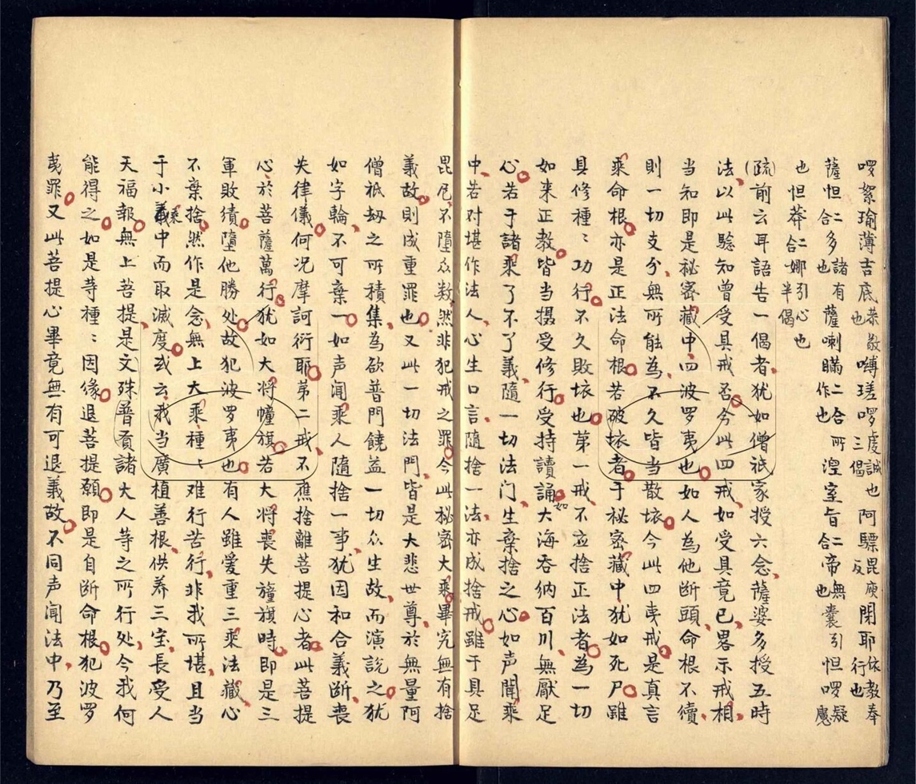 囉絮瑜薄吉底恭敬也嚩瑳囉虔誠三也偈阿驃毘庾反閉耶依教奉行也
薩怛二合多也諸有薩喇瞞二合所作也湼室旨二合帝也無囊引怛囉疑魔
也怛莽二合娜引心也半偈
(疏前云耳語告一偈者猶如僧祇家授六念薩婆多授五時
法以此驗知曾受具戒否今此四戒如受具竟已畧示戒相
當知即是祕密藏中四波罗夷也如人為他断頭命根不續
則一切支分無所能為不久皆当散坏今此四夷戒是真言
乘命根亦是正法命根若破坏者于祕密藏中犹如死尸雖
具修種〻功行不久敗坏也第一戒不应捨正法者為一切
如来正教皆当摄受修行受持讀誦如大海吞纳百川無厭足
心若于諸乘了不了義隨一切法门生棄捨之心如声聞乘
中若对堪作法人心生口言隨捨一法亦成捨戒雖于具足
毘尼不隨众数然非犯戒之罪今此秘密大乘畢究無有捨
義故則成重罪也又此一切法門皆是大悲世尊於無量阿
僧祇劫之所積集為欲普門饒益一切众生故而演說之犹
如字輪不可棄一如声闻乘人隨捨一事犹因和合義断丧
失律儀何况摩訶衍耶第二戒不應捨離菩提心者此菩提
心於菩薩萬行犹如大将幢旗若大将喪失旗旗時即是三
軍敗績隨他勝处故犯波罗夷也有人雖爱重三乘法藏心
不棄捨然作是念無上大乘種〻难行苦行非我所堪且当
于小乘中而取滅度或云我当廣植善根供养三宝長受人
天福報無上菩提是文殊普賢諸大人等之所行处今我何
能得之如是等種〻因缘退菩提願即是自断命根犯波罗
夷罪又此菩提心畢竟無有可退義故不同声闻法中乃至